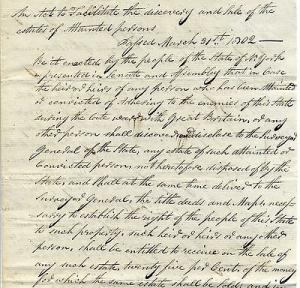 An Act to Falicitate the discovery and sale of the
estates of Attainted persons
Passed March 31st 1802 —
Be it enacted by the people of the State of N. York
represented in Senate and Assembly that in case
the heir or heirs of any person who has been Attainted
or convicted of Adhering to the enemies of this State
during the late war with Great Britain, or any
other person shall discover and disclose to the Surveyor
General of the State, any estate of such attainted or
Convicted person, not heretofore disposed of by the
State, and shall at the same time deliver to the
Surveyor General, the title deeds and Maps neces-
sary to establish the right of the people of this State
to such property, such heir or heirs or any other
person, shall be entitled to receive on the sale of
any such estate twenty five per Cent. of the money
for which the same estate shall be sold, and